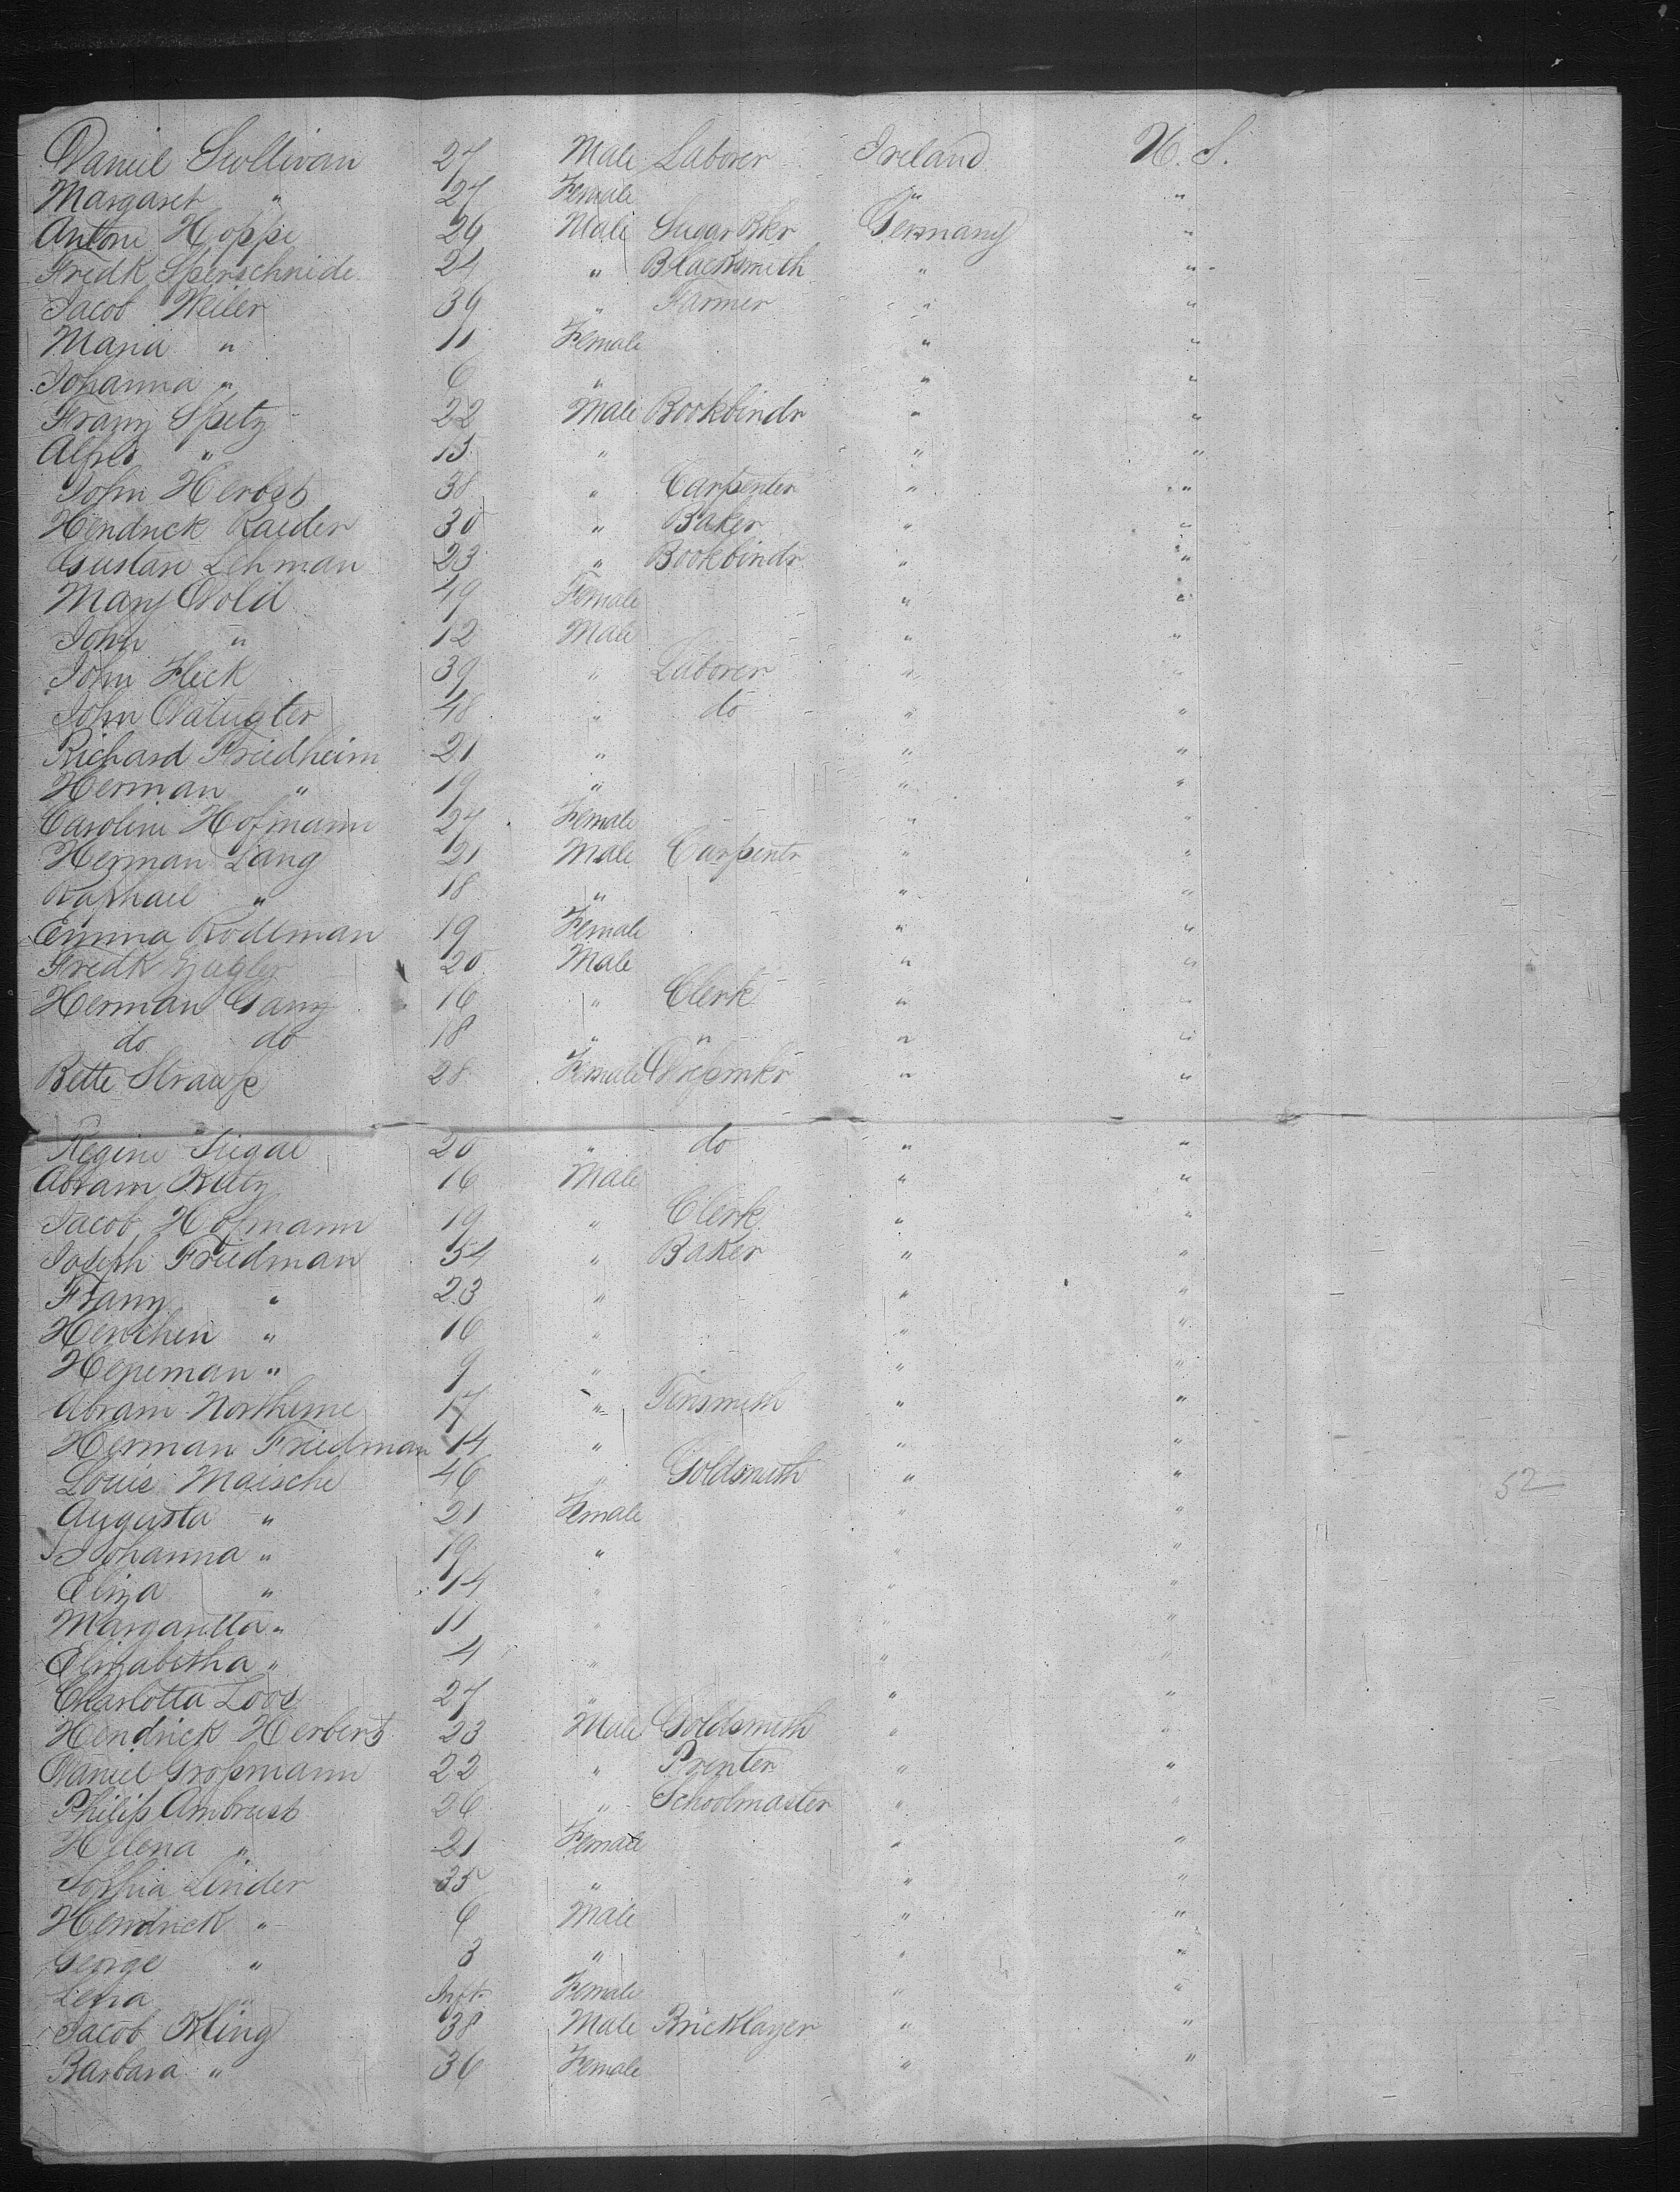 Daniel Sullivan 27 Male Laborer Ireland U. S.
Margaret " 27 Female " "
Antone Hoppe 26 Male Sugar Bkr Germany "
Fredk Sperschneide 24 " Blacksmith " "
Jacob Weiler 39 " Farmer " "
Maria " 11 Female " "
Johanna " 6 " " "
Franz Spetz 22 Male Bookbindr " "
Alfred " 15 " " "
John Herbst 38 " Carpenter " "
Hendrick Raeder 30 " Baker " "
Gustav Lehman 23 " Bookbindr " "
Mary Dold 49 Female " "
John " 12 Male " "
John Fleck 39 " Laborer " "
John 48 " do " "
Richard Friedheim 21 " " "
Herman " 19 " " "
Caroline Hofmann 27 Female " "
Herman Lang 21 Male Carpentr " "
Raphael " 18 " " "
Emma Rodeman 19 Female " "
Fredk 20 Male " "
Herman Ganz 16 " Clerk " "
do do 18 " " " "
Bette Strauss 28 Female Dressmkr " "
Regine Siegal 20 " do " "
Abram Katz 16 Male " "
Jacob Hofmann 19 " Clerk " "
Joseph Friedman 54 " Baker " "
Franz " 23 " " "
Henchen " 16 " " "
Heineman " 9 " " "
Abram Northeime 17 " Tinsmith " "
Herman Friedman 14 " " "
Louis Maische 46 " Goldsmith " " 52
Augusta " 21 Female " "
Johanna " 19 " " "
Eliza " 14 " " "
Margaretta " 11 " " "
Elizabetha " 4 " " "
Charlotta Loos 27 " " "
Hendrick Herbert 23 Male Goldsmith " "
Daniel Grossmann 22 " Printer " "
Philip Ambrust 26 " Schoolmaster " "
Helena " 21 Female " "
Sophia Linder 35 " " "
Hendrick " 6 Male " "
George " 3 " " "
Lena " Inft Female " "
Jacob Kling 38 Male Bricklayer " "
Barbara " 36 Female " "